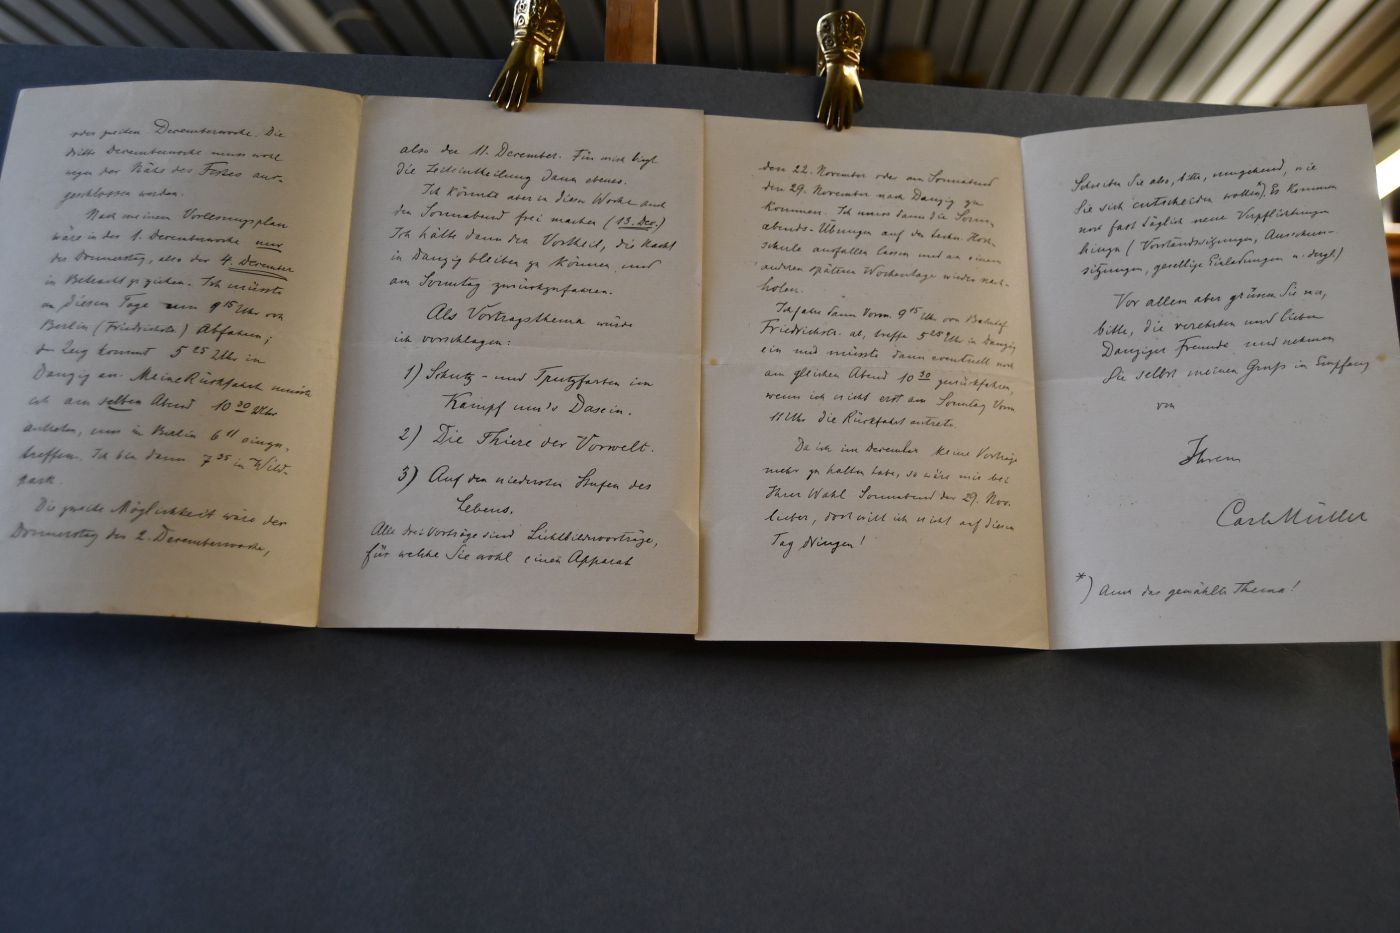 oder zweiten Decemberwoche. Die
dritte Decemberwoche muss wohl
wegen der Nähe des Festes aus-
geschlossen werden.
Nach meinem Vorlesungsplan
wäre in der 1. Decemberwoche nur
der Donnerstag, also der 4. December
in Betracht zu ziehen. Ich müsste
an diesem Tage um 9 15 Uhr von
Berlin (Friedrichstr.) abfahren;
der Zug kommt 5 25 Uhr in
Danzig an. Meine Rückfahrt müsste
ich am selben Abend 10 30 Uhr
antreten, um in Berlin 6 11 einzu-
treffen. Ich bin dann 7 35 in Wild-
park.
Die zweite Möglichkeit wäre der
Donnerstag der 2. Decemberwoche,
also der 11. December. Für mich liegt
die Zeiteintheilung dann ebenso.
Ich könnte aber in dieser Woche auch
den Sonnabend frei machen (13. Dec.)
Ich hätte dann den Vortheil, die Nacht
in Danzig bleiben zu können und
am Sonntag zurückzufahren.
Als Vortragsthema würde
ich vorschlagen:
1) Schutz- und Trutzfarben im
Kampf um's Dasein.
2) Die Thiere der Vorwelt.
3) Auf den niedersten Stufen des
Lebens.
Alle drei Vorträge sind Lichtbildervorträge,
für welche Sie wohl einen Apparat
den 22. November oder am Sonnabend
den 29. November nach Danzig zu
kommen. Ich muss dann die Sonn-
abends-Übungen auf der techn. Hoch-
schule ausfallen lassen und an einem
anderen späteren Wochentage wieder nach-
holen.
Ich fahre dann Vorm. 9 15 Uhr von Bahnhof
Friedrichstr. ab, treffe 5 25 Uhr in Danzig
ein und müsste dann eventuell noch
am gleichen Abend 10 30 zurückfahren,
wenn ich nicht erst am Sonntag Vorm
11 Uhr die Rückfahrt antrete.
Da ich im December keine Vorträge
mehr zu halten habe, so wäre mir bei
Ihrer Wahl Sonnabend der 29. Nov.
lieber, doch will ich nicht auf diesen
Tag dringen!
Schreiben Sie also, bitte, umgehend, wie
Sie sich entscheiden wollen*). Es kommen
uns fast täglich neue Verpflichtungen
hinzu (Vorstandssitzungen, Ausschuss-
sitzungen, gesellige Einladungen u. dergl.)
Vor allem aber grüssen Sie nun,
bitte, die verehrten und lieben
Danziger Freunde und nehmen
Sie selbst meinen Gruss in Empfang
von
Ihrem
Carl Müller
*) Auch das gewählte Thema!